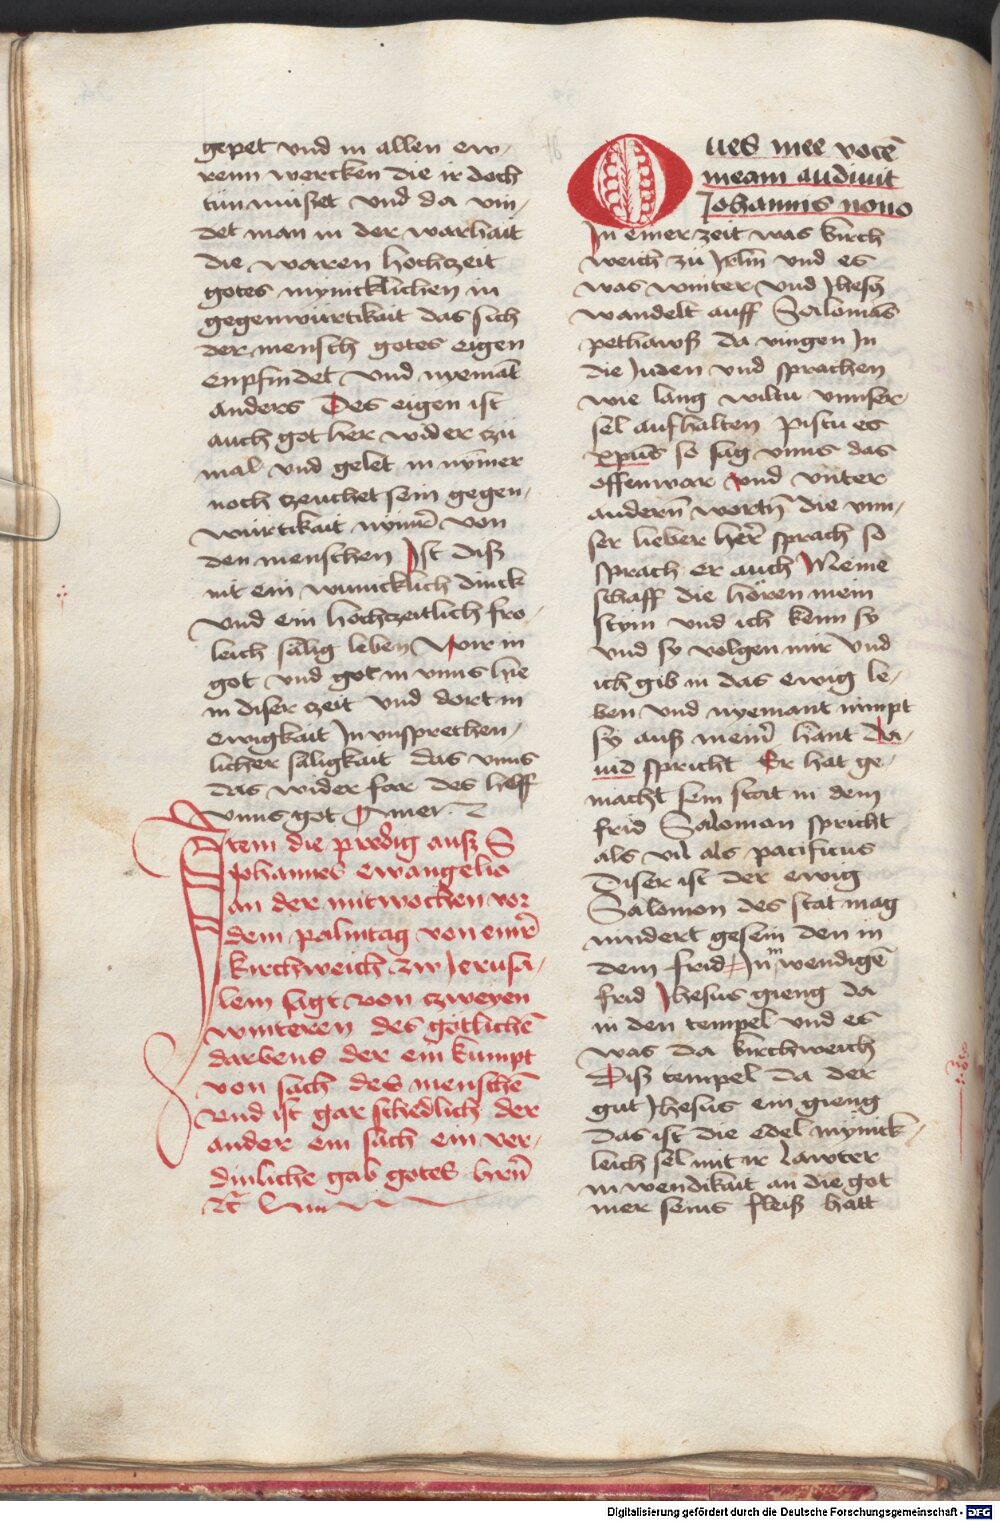 gepet vnd in allen ew-
renn wercken die ir doch
tün müsset vnd da vin-
det man in der warhait
die waren hochczeit
gotes mynicklichen in
gegenwürtikait das sich
der mensch gotes eigen
enpfindet vnd nyemāt
anders Des eigen ist
auch got her wider zu
mal vnd gelet in nymer
noch czeuchet sein gegen-
würtikait nym̄ von
den menschen Ist diß
nit ein wunicklich dinck
vnd ein hochczeitlich fro-
leich sälig leben Wir in
got vnd got in vnns hie
in diser czeit vnd dort in
ewigkait In vnsprechen-
licher säligkait das vnns
das wider far des helff
vnns got Amen
Item die predig auß S
Johannes ewangelio
an der mitwochen vor
dem palmtag von ein̄
kirchweich zw Jerusa-
lem sagt von czweyen
winteren des götlichē
darbens der ein kumpt
von sach des menschē
vnd ist gar schedlich der
ander ein sach ein ver-
dinliche gab gotes
Oues mee vocē
meam audiunt
Johannis nono
In einer zeit was kirch
weich zu Jrlm̄ vnd es
was winter vnd Jhesus
wandelt auff Salomās
pethawß da vingen In
die Juden vnd sprachen
wie lang wiltu vnnser
sel aufhalten pistu es
xpūs so sag vnns das
offenwar vnd vnter
anderñ wortn̄ die vnn-
ser lieber her̄ sprach so
sprach er auch Meine
schaff die hören mein
stym vnd ich kenn sy
vnd sy volgen mir vnd
ich gib in das ewig le-
ben vnd nyemant nimpt
sy auß mein̄ hant Da-
uid spricht Er hat ge-
macht sein stat in dem
frid Salomon spricht
als vil als pacificus
Diser ist der ewig
Salomon des stat mag
nindert gesein den in
dem frid Inn wendigē
frid Jhesus gieng da
in den tempel vnd es
was da kirchweich
Diß tempel da der
gut Jhesus ein gieng
das ist die edel mynick-
leich sel mit ir lawter
inwendikait an die got
mer seins fleiß hatt
Digitalisierung gefördert durch die Deutsche Forschungsgemeinschaft - DFG